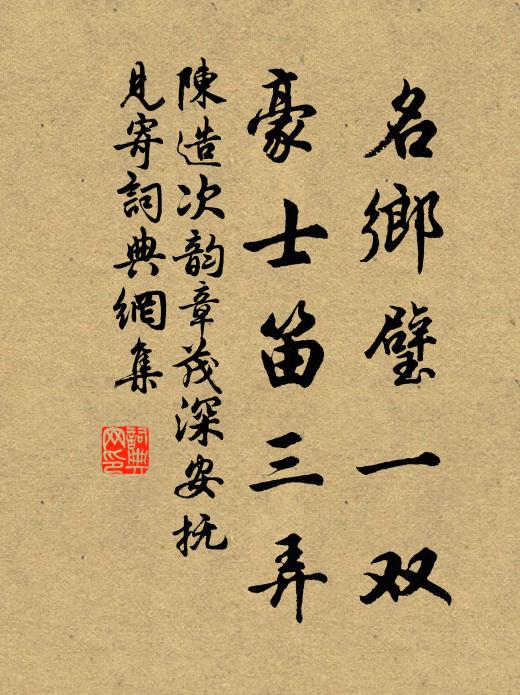 名鄉璧一双
豪士笛三弄
陳造次韵章茂深安抚
見寄詞典網集
詞典網印